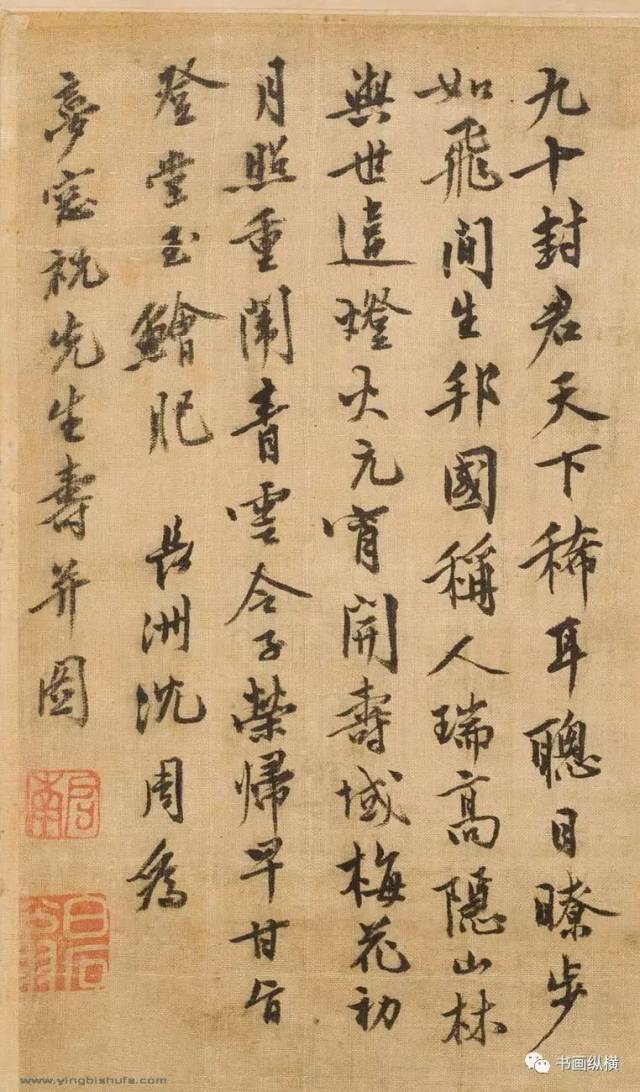 九十封君天下稀耳聰目瞭步
如飛間生邦國稱人瑞高隱山林
與世違燈火元宵開壽域梅花初
月照重闈青雲令子榮歸早甘旨
登堂玉鱠肥　長洲沈周為
夢窗祝先生壽并圖
啟南
白石翁
www.yingbishufa.com
书画纵横